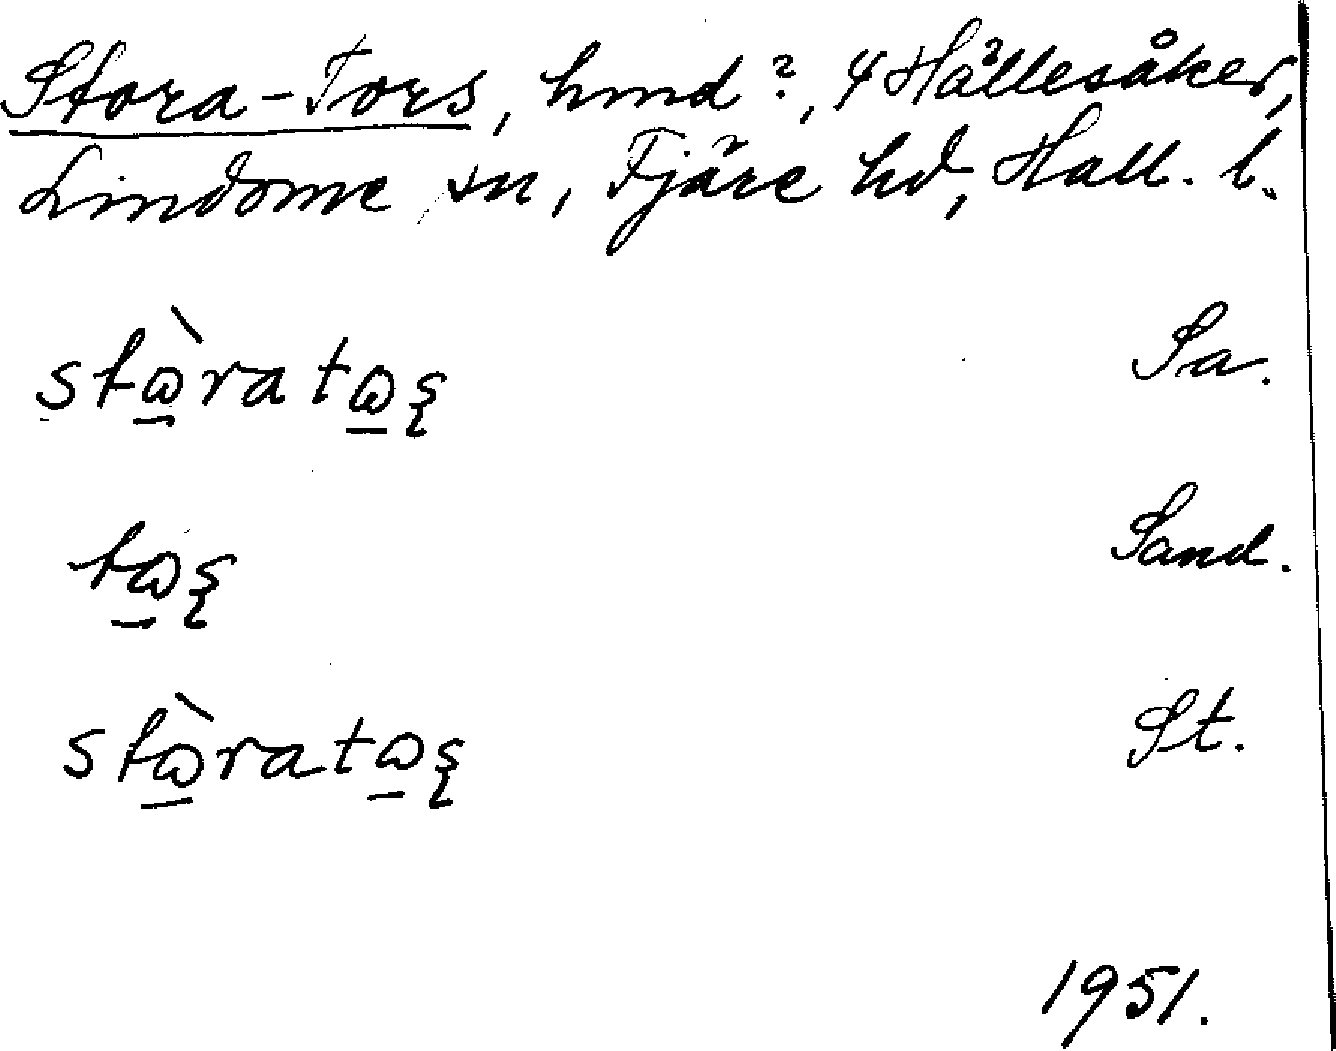 Stora-Tors, hmd?, 4 Hällesåker,
Lindome sn, Fjäre hd, Hall. l.
stὼ̲ratω̲ʂ Sa.
tω̲ʂ Sand.
stὼ̲ratω̲ʂ St.
1951.